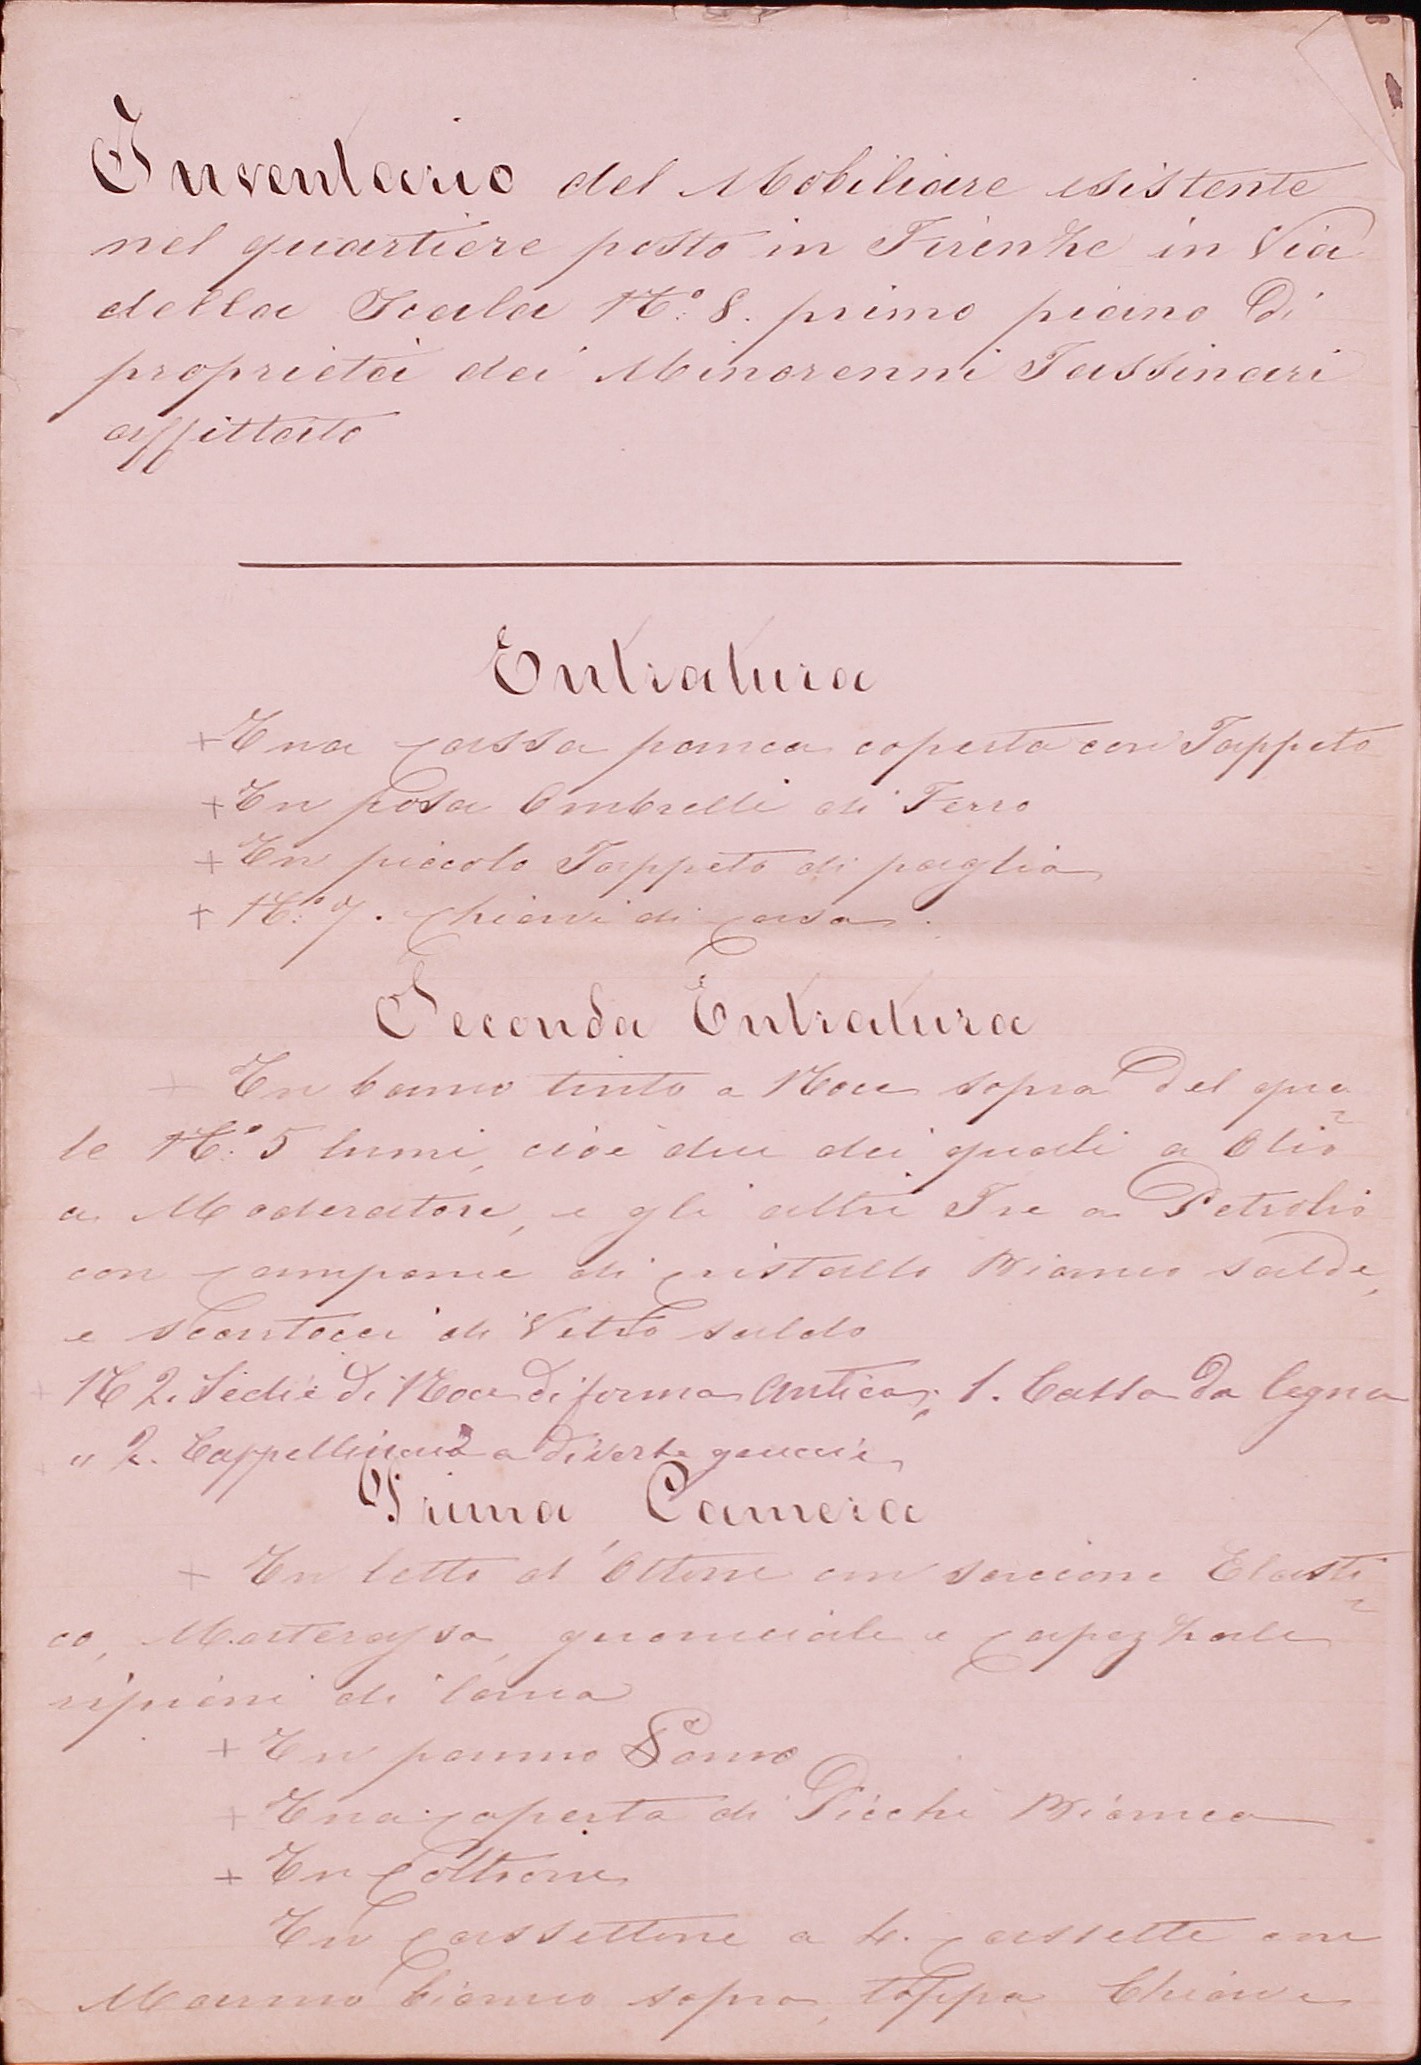 Inventario del Mobiliare esistente
nel quartiere posto in Firenze in Via
della Scala N.° 8. primo piano di
proprietà dei Minorenni Tassinari
affittato
Entratura
+ Una Cassa panca coperta con Tappeto
+ Un posa Ombrelli di Ferro
+ Un piccolo Tappeto di paglia
+ N.° 7. Chiavi di Casa.
Seconda Entratura
+ Un banco tinto a Noce sopra del qua
le N.° 5 lumi, cioè due dei quali a Olio
a Moderatore, e gli altri Tre a Petrolio
con Campane di Cristallo Bianco salde,
e scartocci di Vetro saldo
+ N 2. Sedie di Noce di forma antica; 1. Cassa da legna
" 2. Cappellinai a diverse gruccie
Prima Camera
+ Un letto d'Ottone con saccone Elasti
co, Materassa, guanciale e Capezzale
ripieni di lana
+ Un panno Lano
+ Una Coperta di Picchè Bianca
+ Un Coltrone
Un Cassettone a 4. Cassette con
Marmo bianco sopra, toppa Chiave